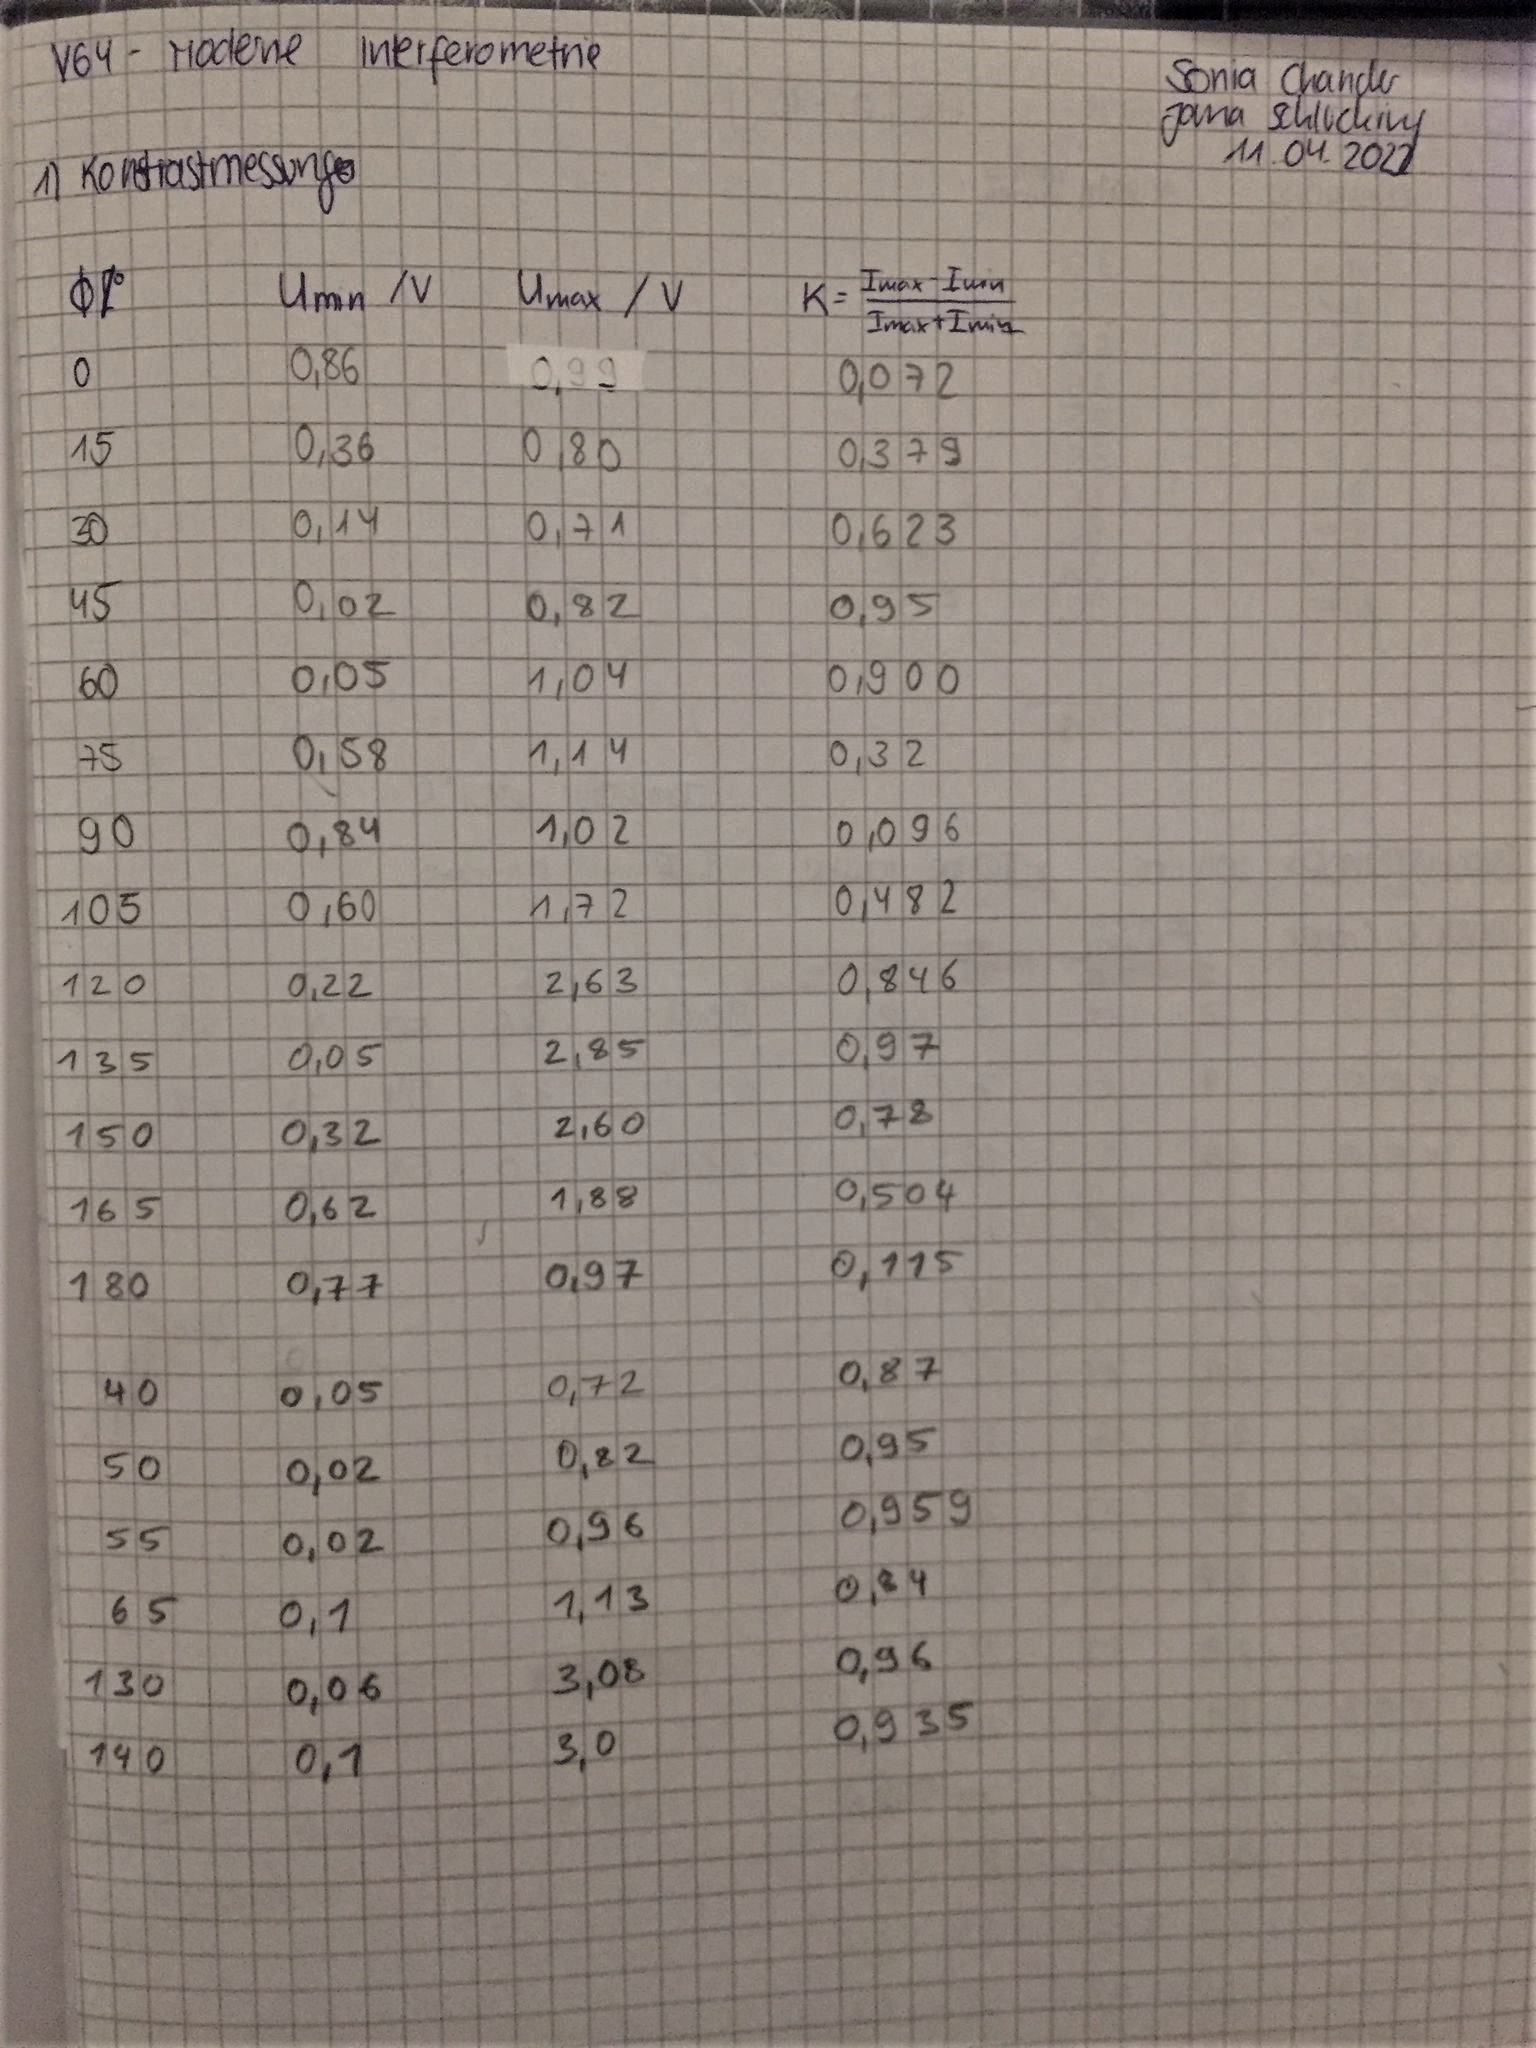 V64 - Moderne Interferometrie
Sonia Chander
Jona Schlücking
11.04.2022
1) Kontrastmessung
Φ/° Umin /V Umax / V K = Imax - Imin / Imax + Imin
0 0,86 0,99 0,072
15 0,36 0,80 0,379
30 0,14 0,71 0,623
45 0,02 0,82 0,95
60 0,05 1,04 0,900
75 0,58 1,14 0,32
90 0,84 1,02 0,096
105 0,60 1,72 0,482
120 0,22 2,63 0,846
135 0,05 2,85 0,97
150 0,32 2,60 0,78
165 0,62 1,88 0,504
180 0,77 0,97 0,115
40 0,05 0,72 0,87
50 0,02 0,82 0,95
55 0,02 0,96 0,959
65 0,1 1,13 0,84
130 0,06 3,08 0,96
140 0,1 3,0 0,935